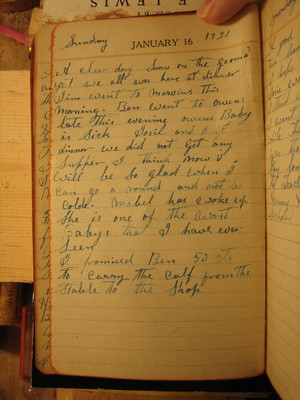 E. LEWIS
Sunday JANUARY 16 1921
A clear day Snow on the ground
yet we all was here at dinner
Jim went to this
Morning. Ben went to Owens
late this evening Owens Baby
is Sick and
dinner we did not get any
Supper, I think Mow I
Will be So glad when I
can go a round and not be
colde. Mabel has woke up
She is one of the worst
Babys that I have ever
Seen
I promised Ben 50 cts
to carry the calf from the
Stable to the Shop